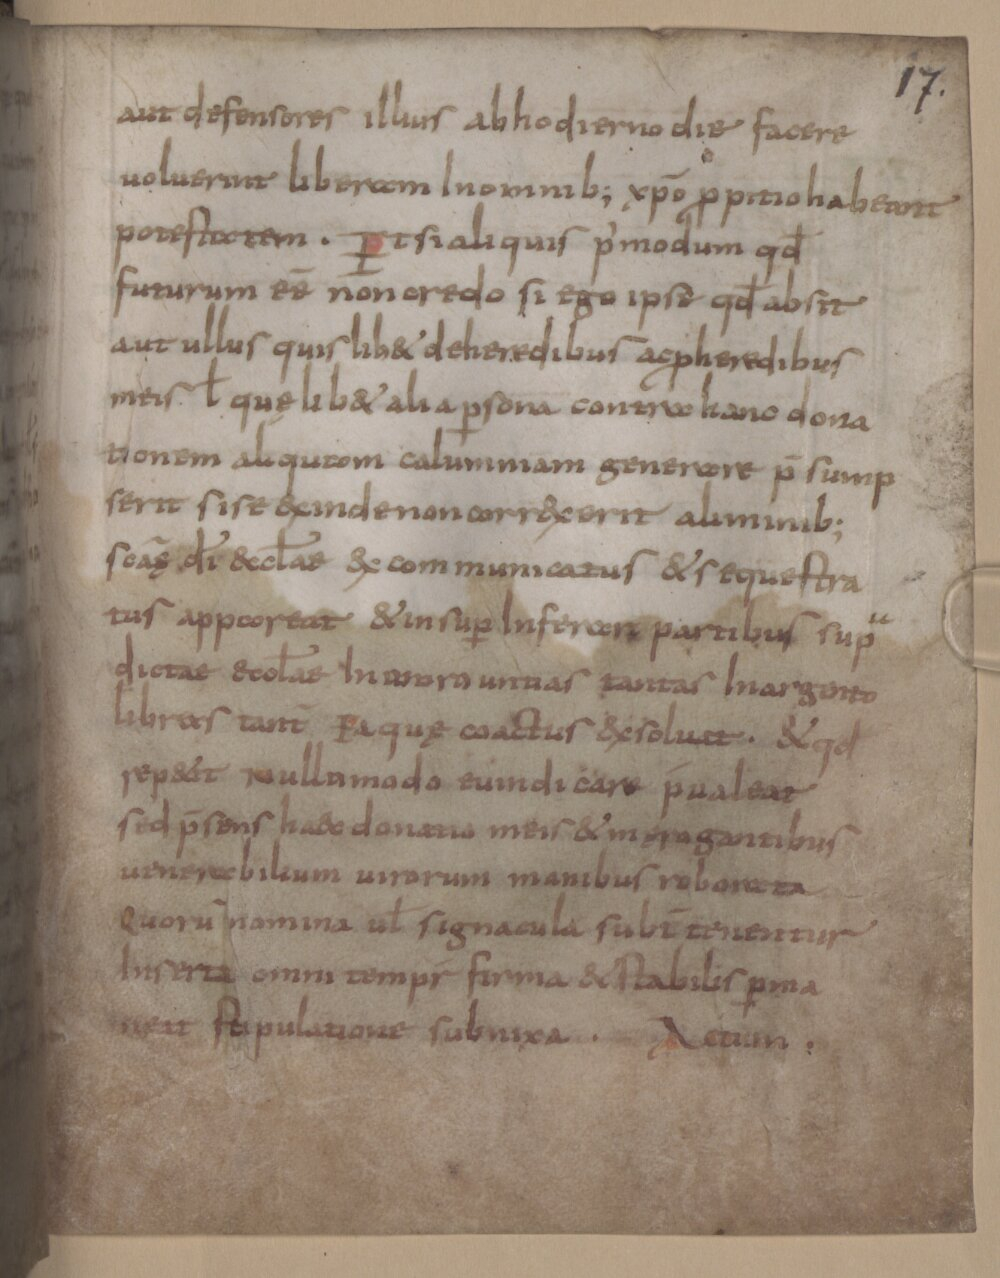 17.
aut defensores illius abhodierno die facere
uoluerint liberam Inomnib; xp̄o ꝓpitio habeant
potestatem . Et si aliquis p'modum qd̄
futurum eē non credo si ego ipse qd̄ absit
aut ullus quislib& deheredibus ac ꝓheredibus
meis ł quę lib& alia ꝑsona contra hanc dona
tionem aliquam calumniam generare p̄sump
serit si se &inde non corr&erit aliminib;
scāę dī &cłae &communicatus & sequestra
tus appareat & insuꝑ Inferat partibus sup^a
dictae ecclae In auro untias tantas Inargento
libras tant̄ Ea quę coactus &soluat . & qd
rep&it Nullamodo euindicare p̄ualeat
sed p̄sens haec donatio meis & in rogantibus
uenerabilium uirorum manibus roborata
Quorū nomina ul̄ signacula subt̄ tenentur
Inserta omni tempr̄ firma & stabilis ꝑma
neat stipulatione subnixa . Actum .